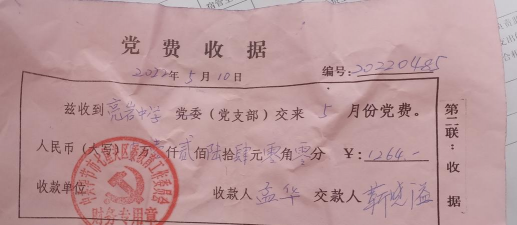 党费收据
2022年5月10日 编号:20220485
兹收到亮岩中学 党委(党支部)交来 5 月份党费。
人民币(大写) 万壹仟贰佰陆拾肆元零角零分 ¥:1264.—
收款单位 收款人 孟华 交款人
财务专用章
第二联:收据